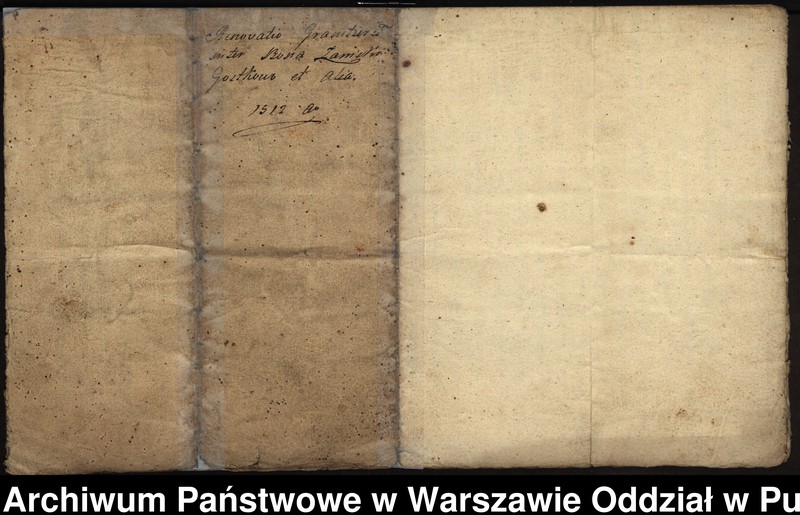 Renovatio Granitier
inter Bona
Gostkowo et Alia.
1512 ao
Archiwum Państwowe w Warszawie Oddział w Pu